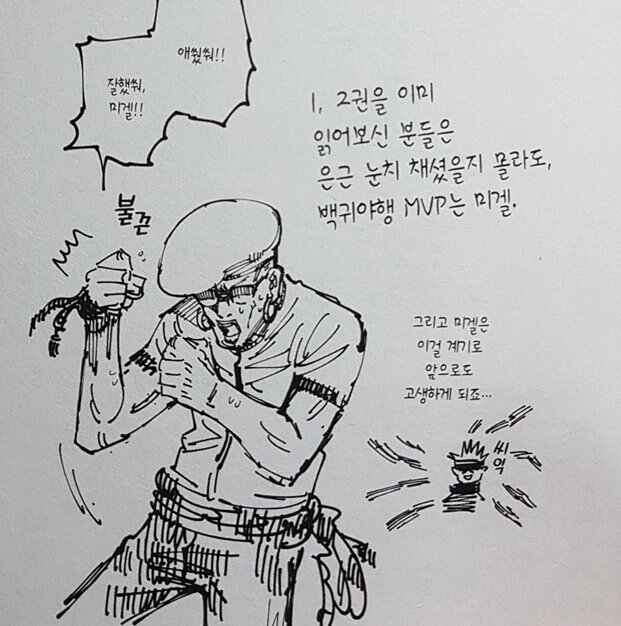 애썼쒀!!
잘했쒀,
미겔!!
불끈
1, 2권을 이미
읽어보신 분들은
은근 눈치 채셨을지 몰라도,
백귀야행 MVP는 미겔.
그리고 미겔은
이걸 계기로
앞으로도
고생하게 되죠…
씨
익